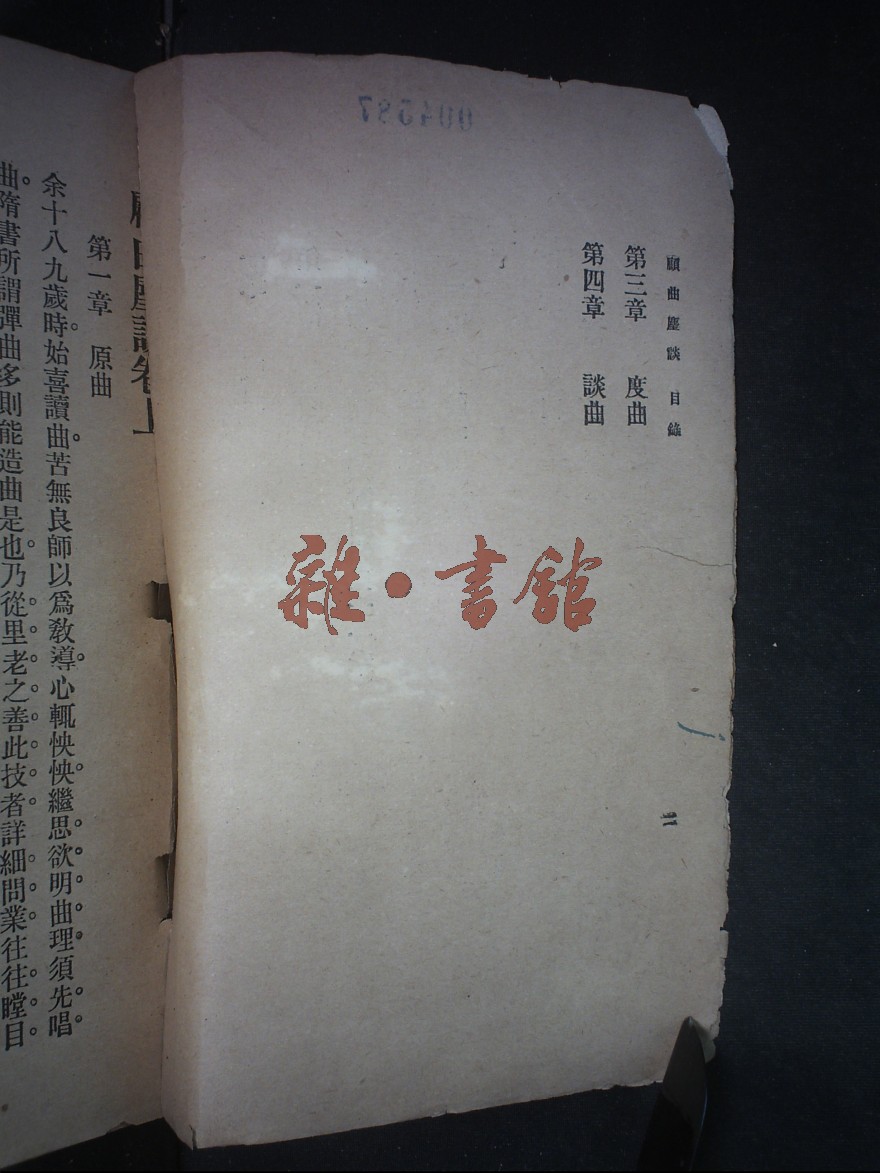 顧曲塵談 目錄
第三章 度曲
第四章 談曲
二
004587
雜·書館
顧曲塵談卷上
第一章 原曲
余十八九歲時。始喜讀曲。苦無良師以爲教導。心輒怏怏。繼思欲明曲理。須先唱
曲。隋書所謂彈曲多則能造曲是也。乃從里老之善此技者。詳細問業。往往瞠目